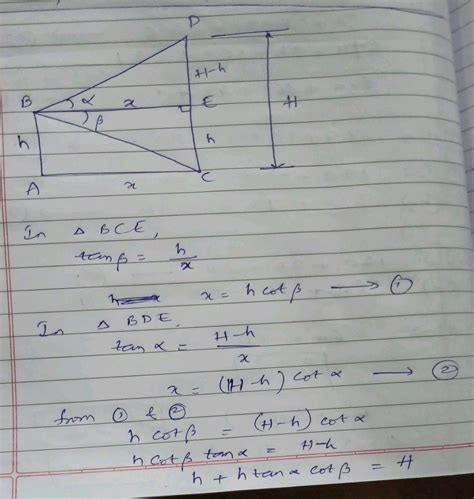 D
H-h
B α x E H
β
h h
A x C
In △ BCE,
tan β = h/x
x = h cot β ⟶ ①
In △ BDE,
tan α = H-h/x
x = (H-h) cot α ⟶ ②
from ① & ②
h cot β = (H-h) cot α
h cot β tan α = H-h
h + h tan α cot β = H